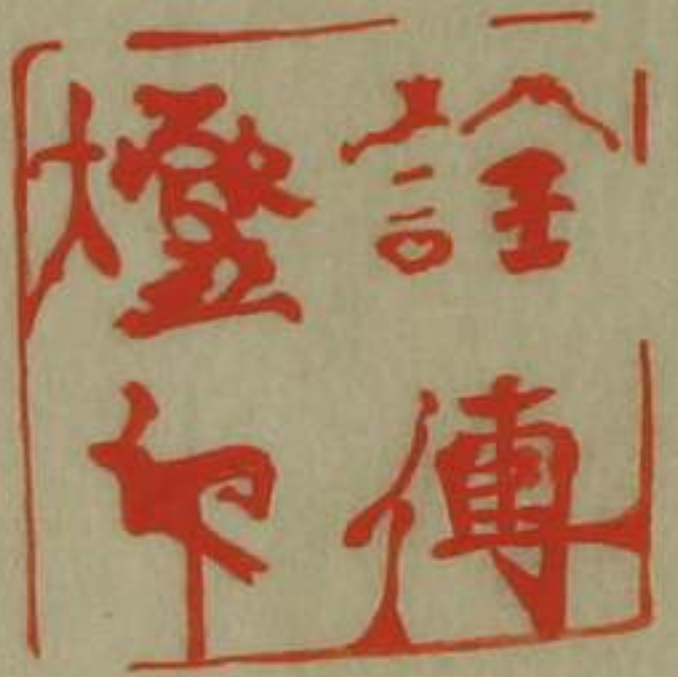 詮傳
燈印